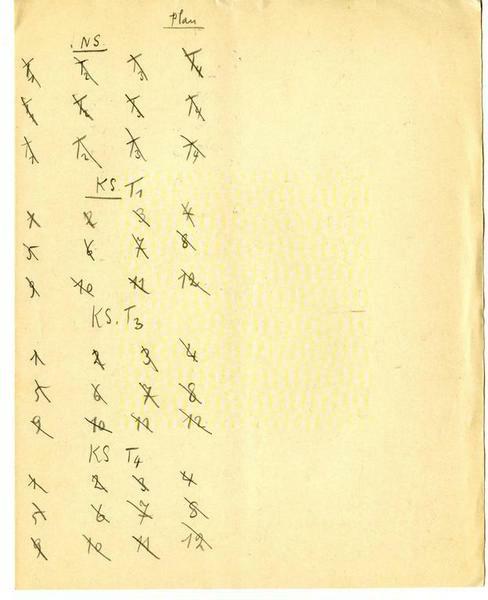 Plan
NS.
T1 T2 T3 T4
T1 T2 T3 T4
T1 T2 T3 T4
KS. T1
1 2 3 4
5 6 7 8
9 10 11 12
KS. T3
1 2 3 4
5 6 7 8
9 10 11 12
KS T4
1 2 3 4
5 6 7 8
9 10 11 12